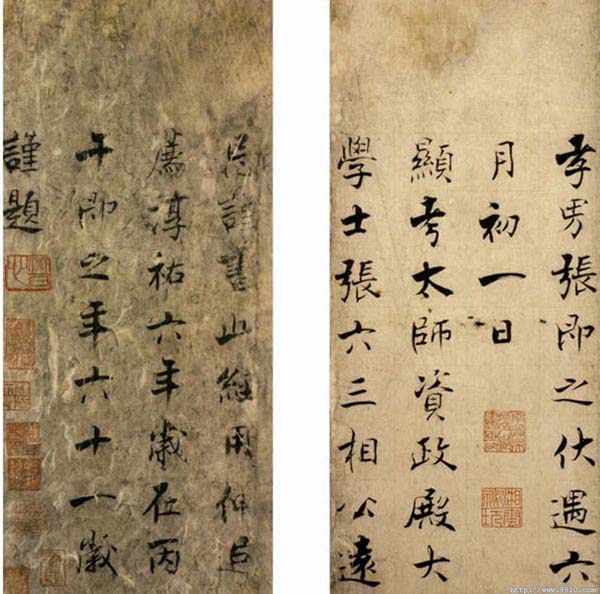 孝男張即之伏遇六
月初一日
顯考太師資政殿大
學士張六三相公遠
忌謹書此經用伸追
薦淳祐六年歲在丙
午即之年六十一歲
謹題
http://www.9610.com